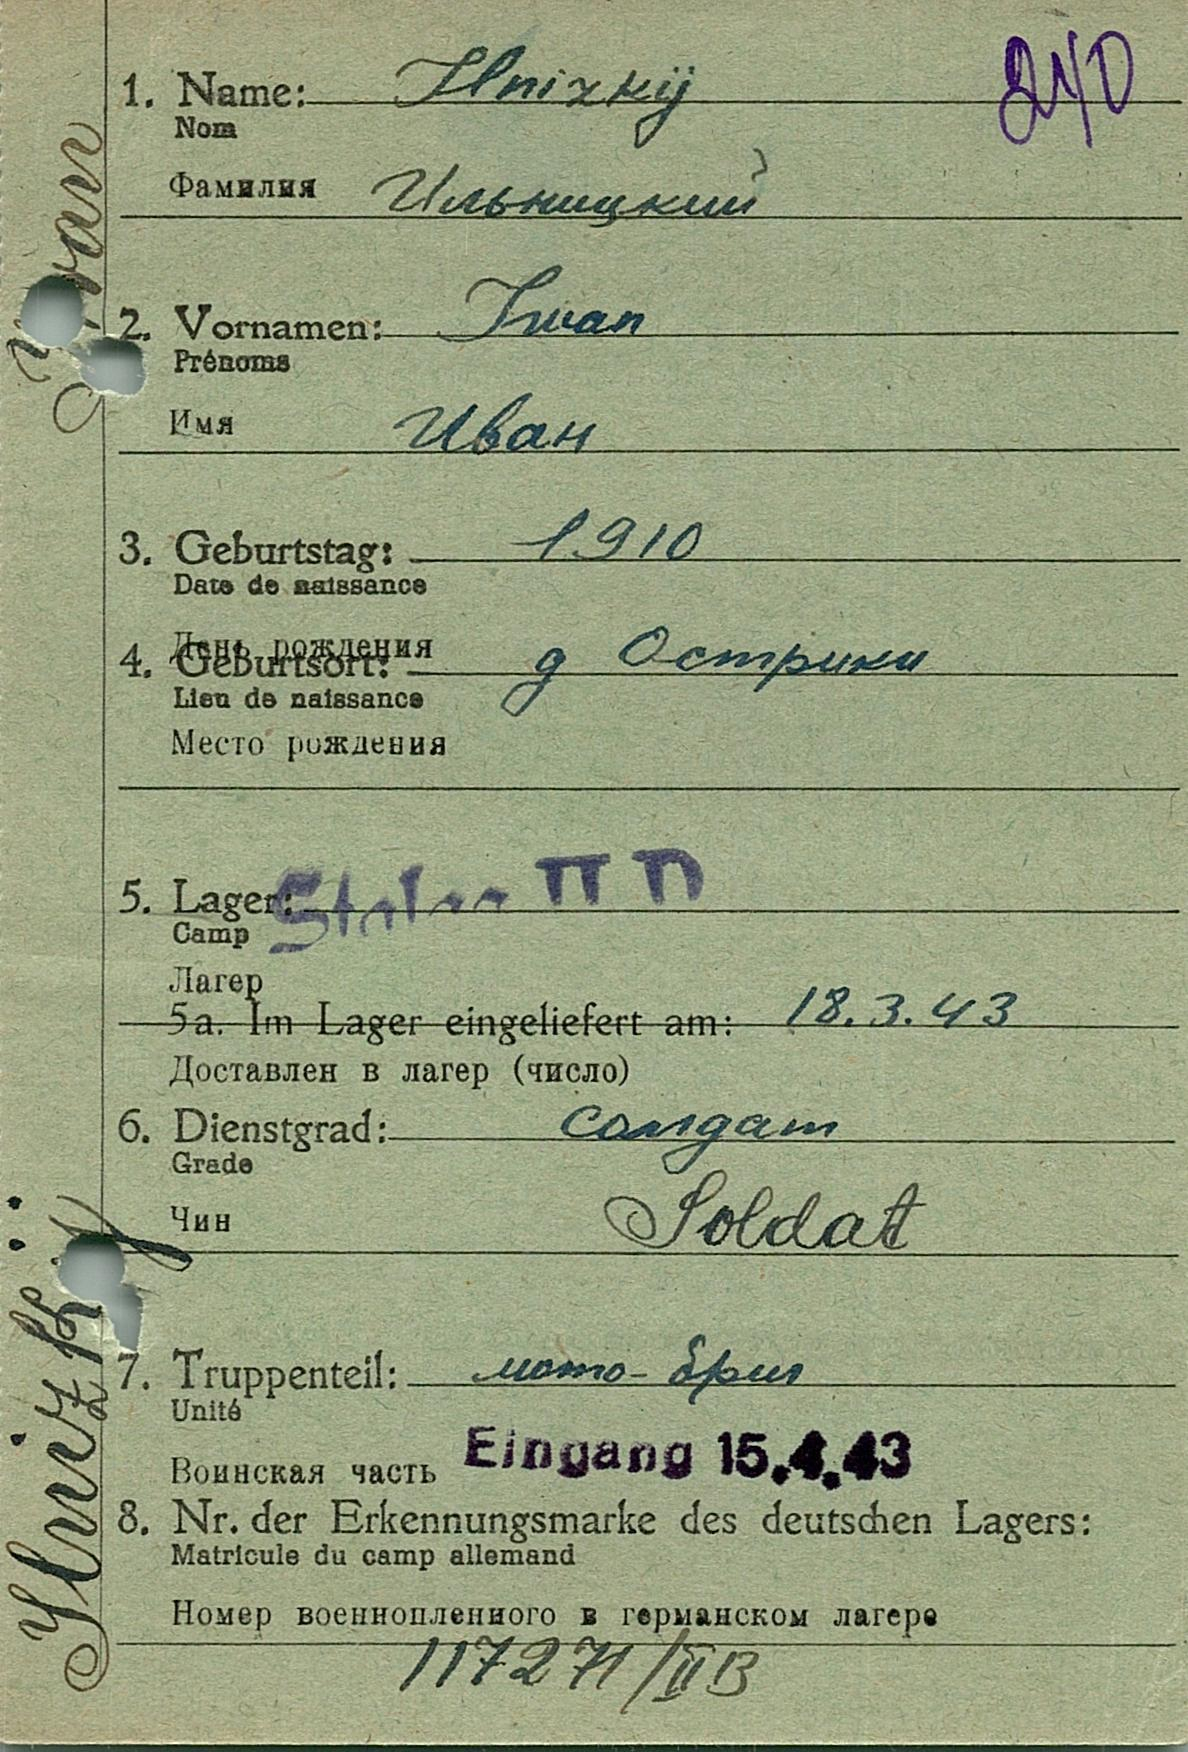 240
1. Name: Ilnizkij
Nom
Фамилия Ильницкий
2. Vornamen: Iwan
Prénoms
Имя Иван
3. Geburtstag: 1910
Date de naissance
День рождения
4. Geburtsort: д Острики
Lieu de naissance
Место рождения
5. Lager: Stalag II D
Camp
Лагер
5a. Im Lager eingeliefert am: 18.3.43
Доставлен в лагер (число)
6. Dienstgrad: солдат
Grade
Чин Soldat
7. Truppenteil: мото-бриг
Unité
Воинская часть Eingang 15.4.43
8. Nr. der Erkennungsmarke des deutschen Lagers:
Matricule du camp allemand
Номер военнопленного в германском лагере
117271/II B
Ilnizkij Iwan